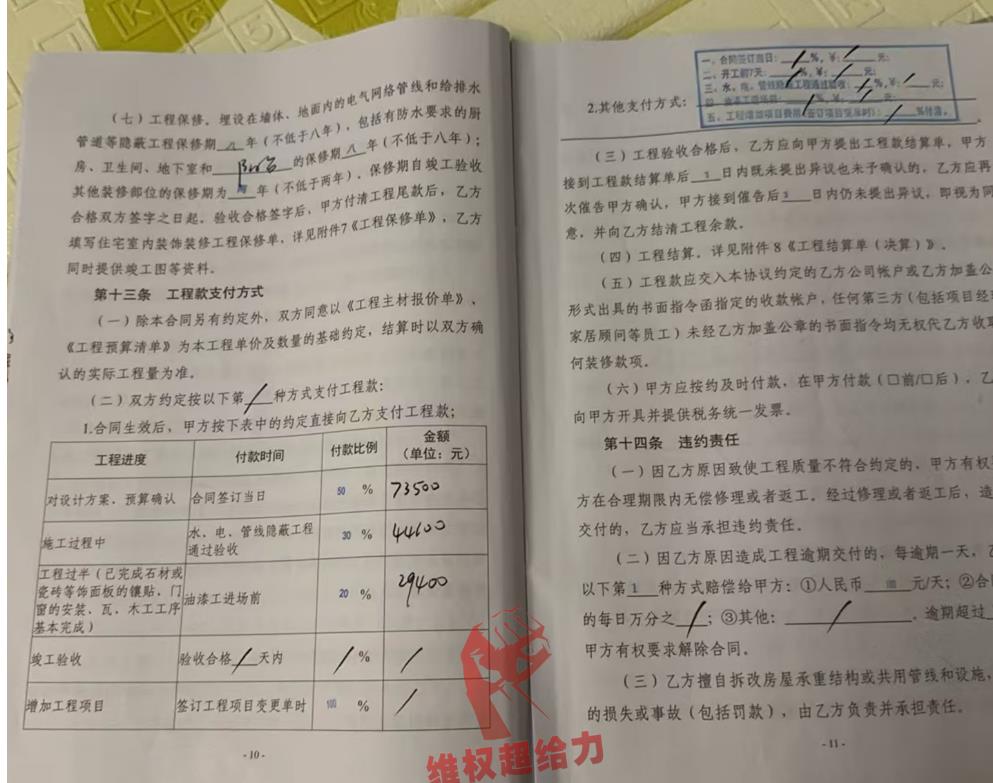 （七）工程保修。埋设在墙体、地面内的电气网络管线和给排水
管道等隐蔽工程保修期 八 年（不低于八年），包括有防水要求的厨
房、卫生间、地下室和 的保修期 八 年（不低于八年）；
其他装修部位的保修期为 年（不低于两年），保修期自竣工验收
合格双方签字之日起。验收合格签字后，甲方付清工程尾款后，乙方
填写住宅室内装饰装修工程保修单，详见附件7《工程保修单》，乙方
同时提供竣工图等资料。
第十三条 工程款支付方式
（一）除本合同另有约定外，双方同意以《工程主材报价单》、
《工程预算清单》为本工程单价及数量的基础约定，结算时以双方确
认的实际工程量为准。
（二）双方约定按以下第 / 种方式支付工程款：
1.合同生效后，甲方按下表中的约定直接向乙方支付工程款；
工程进度 付款时间 付款比例 金额（单位：元）
对设计方案、预算确认 合同签订当日 50 % 73500
施工过程中 水、电、管线隐蔽工程通过验收 30 % 44100
工程过半（已完成石材或瓷砖等饰面板的镶贴，门窗的安装、瓦、木工工序基本完成） 油漆工进场前 20 % 29400
竣工验收 验收合格 / 天内 / % /
增加工程项目 签订工程项目变更单时 100 % /
- 10 -
一、合同签订当日： / %，¥： / 元；
二、开工前7天： / %，¥： / 元；
三、水、电、管线隐蔽工程通过验收： / %，¥： / 元；
2.其他支付方式：
五、工程增加项目费用（签订项目变更单时）： / %付清。
（三）工程验收合格后，乙方应向甲方提出工程款结算单，甲方
接到工程款结算单后 3 日内既未提出异议也未予确认的，乙方应再
次催告甲方确认，甲方接到催告后 3 日内仍未提出异议，即视为同
意，并向乙方结清工程余款。
（四）工程结算。详见附件 8《工程结算单（决算）》。
（五）工程款应交入本协议约定的乙方公司帐户或乙方加盖公
形式出具的书面指令函指定的收款帐户，任何第三方（包括项目经
家居顾问等员工）未经乙方加盖公章的书面指令均无权代乙方收
何装修款项。
（六）甲方应按约及时付款，在甲方付款（□前/□后），乙
向甲方开具并提供税务统一发票。
第十四条 违约责任
（一）因乙方原因致使工程质量不符合约定的，甲方有权
方在合理期限内无偿修理或者返工。经过修理或者返工后，造
交付的，乙方应当承担违约责任。
（二）因乙方原因造成工程逾期交付的，每逾期一天，
以下第 1 种方式赔偿给甲方：①人民币 元/天；②合
的每日万分之 / ；③其他： / 。逾期超过
甲方有权要求解除合同。
（三）乙方擅自拆改房屋承重结构或共用管线和设施，
的损失或事故（包括罚款），由乙方负责并承担责任。
- 11 -
维权超给力